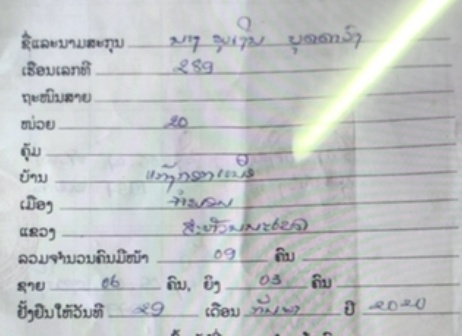 ຊື່ແລະນາມສະກຸນ ນາງ
ເຮືອນເລກທີ 289
ຖະໜົນສາຍ
ໜ່ວຍ 20
ຄຸ້ມ
ບ້ານ
ເມືອງ ຈໍາພອນ
ແຂວງ ສະຫວັນນະເຂດ
ລວມຈຳນວນຄົນມີໜ້າ 09 ຄົນ
ຊາຍ 06 ຄົນ, ຍິງ 03 ຄົນ
ຢັ້ງຢືນໃຫ້ວັນທີ 29 ເດືອນ ທັນວາ ປີ 2020